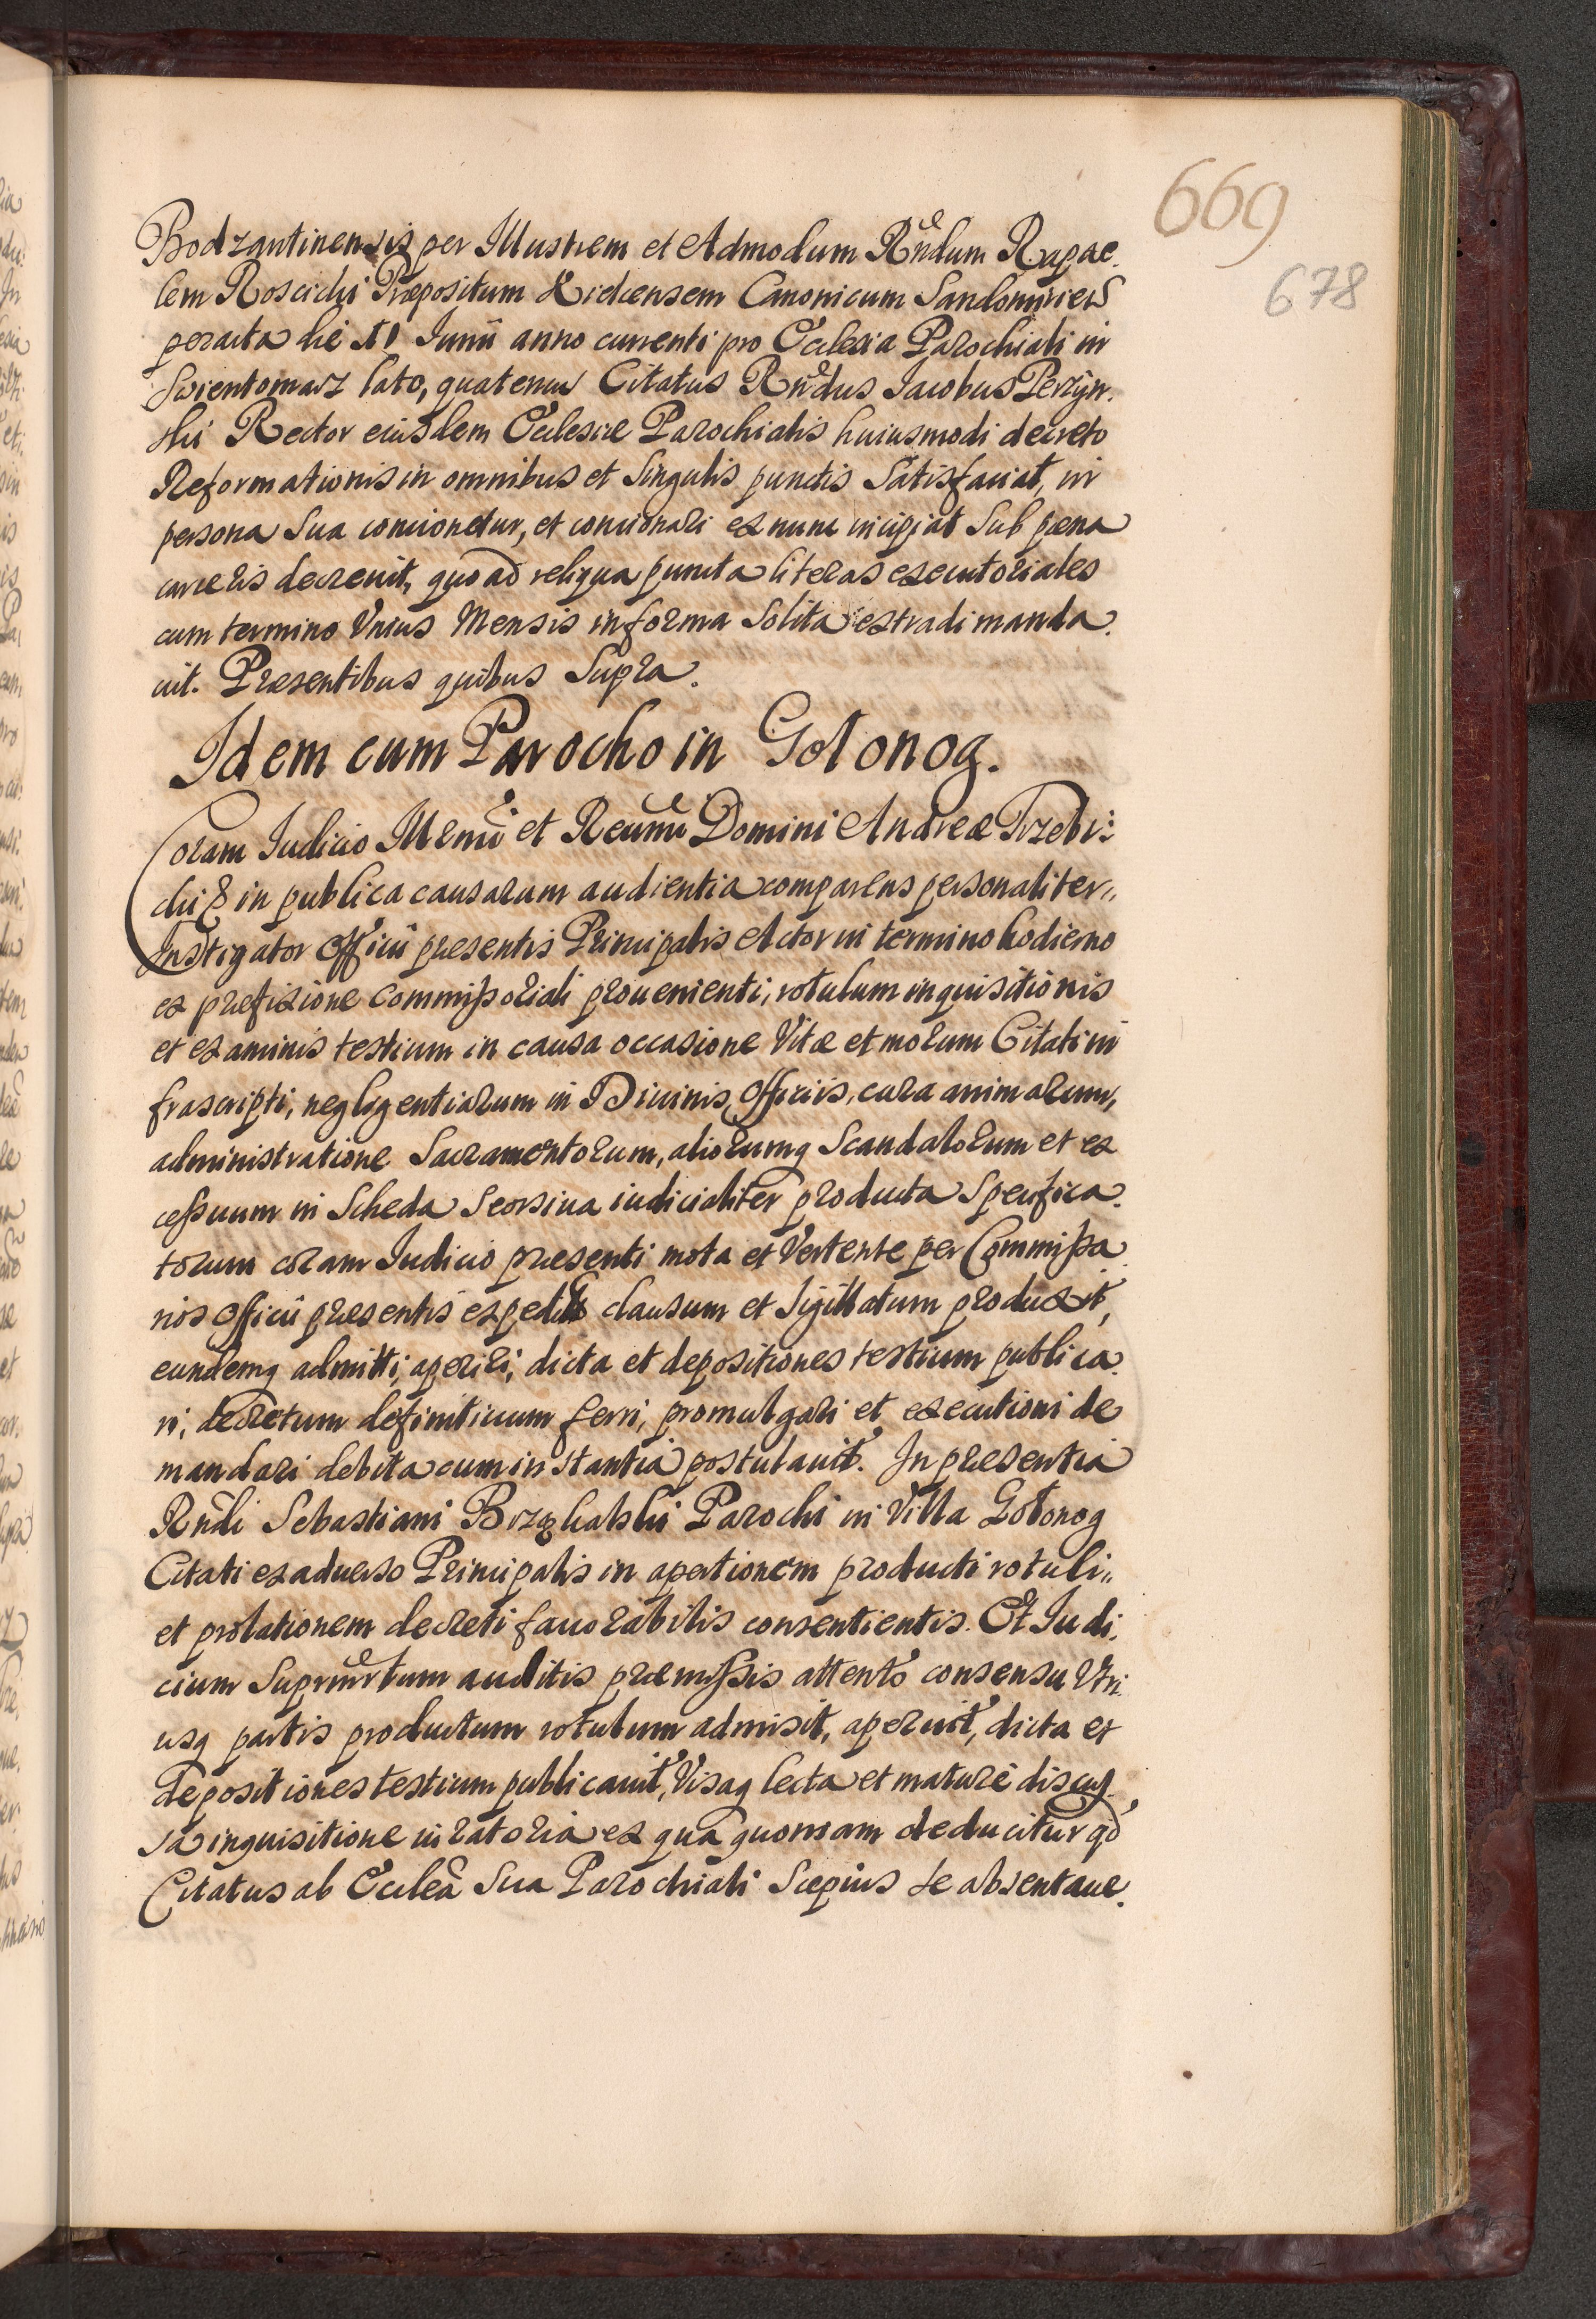 669
678
Bodzantinensis per Illustrem et Admodum Rndum Rapae.
lem Roscicki Præpositum Kielcensem Canonicum Sandomirien
peracta die 11 Junii anno currenti pro Ecclesia Parochiali in
Swientomarz lato, quatenus Citatus Rndus Jacobus Perzyn.
ski Rector eiusdem Ecclesiæ Parochialis huiusmodi decreto
Reformationis in omnibus et singulis punctis satisfaciat, in
persona sua concionetur, et concionari ex nunc incipiat sub pœna
carceris decrevit, quo ad reliqua puncta literas executoriales
cum termino Unius Mensis in forma solita extradi manda.
uit. Præsentibus quibus supra.
Idem cum Parocho in Gołonog.
Coram Iudicio Illmi et Reumi Domini Andreæ Trzebi:
cki & in publica causarum audientia comparens personaliter
Instigator Officii præsentis Principalis Actor in termino hodierno
ex præfixione commissoriali prouenienti, rotulum inquisitionis
et examinis testium in causa occasione Vitæ et morum Citati in
frascripti, negligentiarum in Diuinis Officiis, cura animarum,
administratione Sacramentorum, aliorumq scandalorum et ex
cessuum in scheda seorsiua iudicialiter producta specifica.
torum coram Iudicio præsenti mota et Vertente per Commissa.
rios Officii præsentis expeditū clausum et sigillatum produxit,
eundemq admitti, aperiri, dicta et depositiones testium publica.
ri, decretum definitiuum ferri, promulgari et executioni de
mandari debita cum instantia postulauit. In præsentia
Rndi Sebastiani Brzękalski Parochi in Villa Gołonog
Citati ex aduerso Principalis in apertionem producti rotuli
et prolationem decreti fauorabilis consentientis. Et Iudi.
cium suprartum auditis præmissis attento consensu Utri.
usq partis productum rotulum admisit, aperuit, dicta et
depositiones testium publicauit, Visaq lecta et mature discus.
sa inquisitione iuratoria ex qua quoniam deducitur qd
Citatus ab Ecclea sua Parochiali sæpius se absentaue.